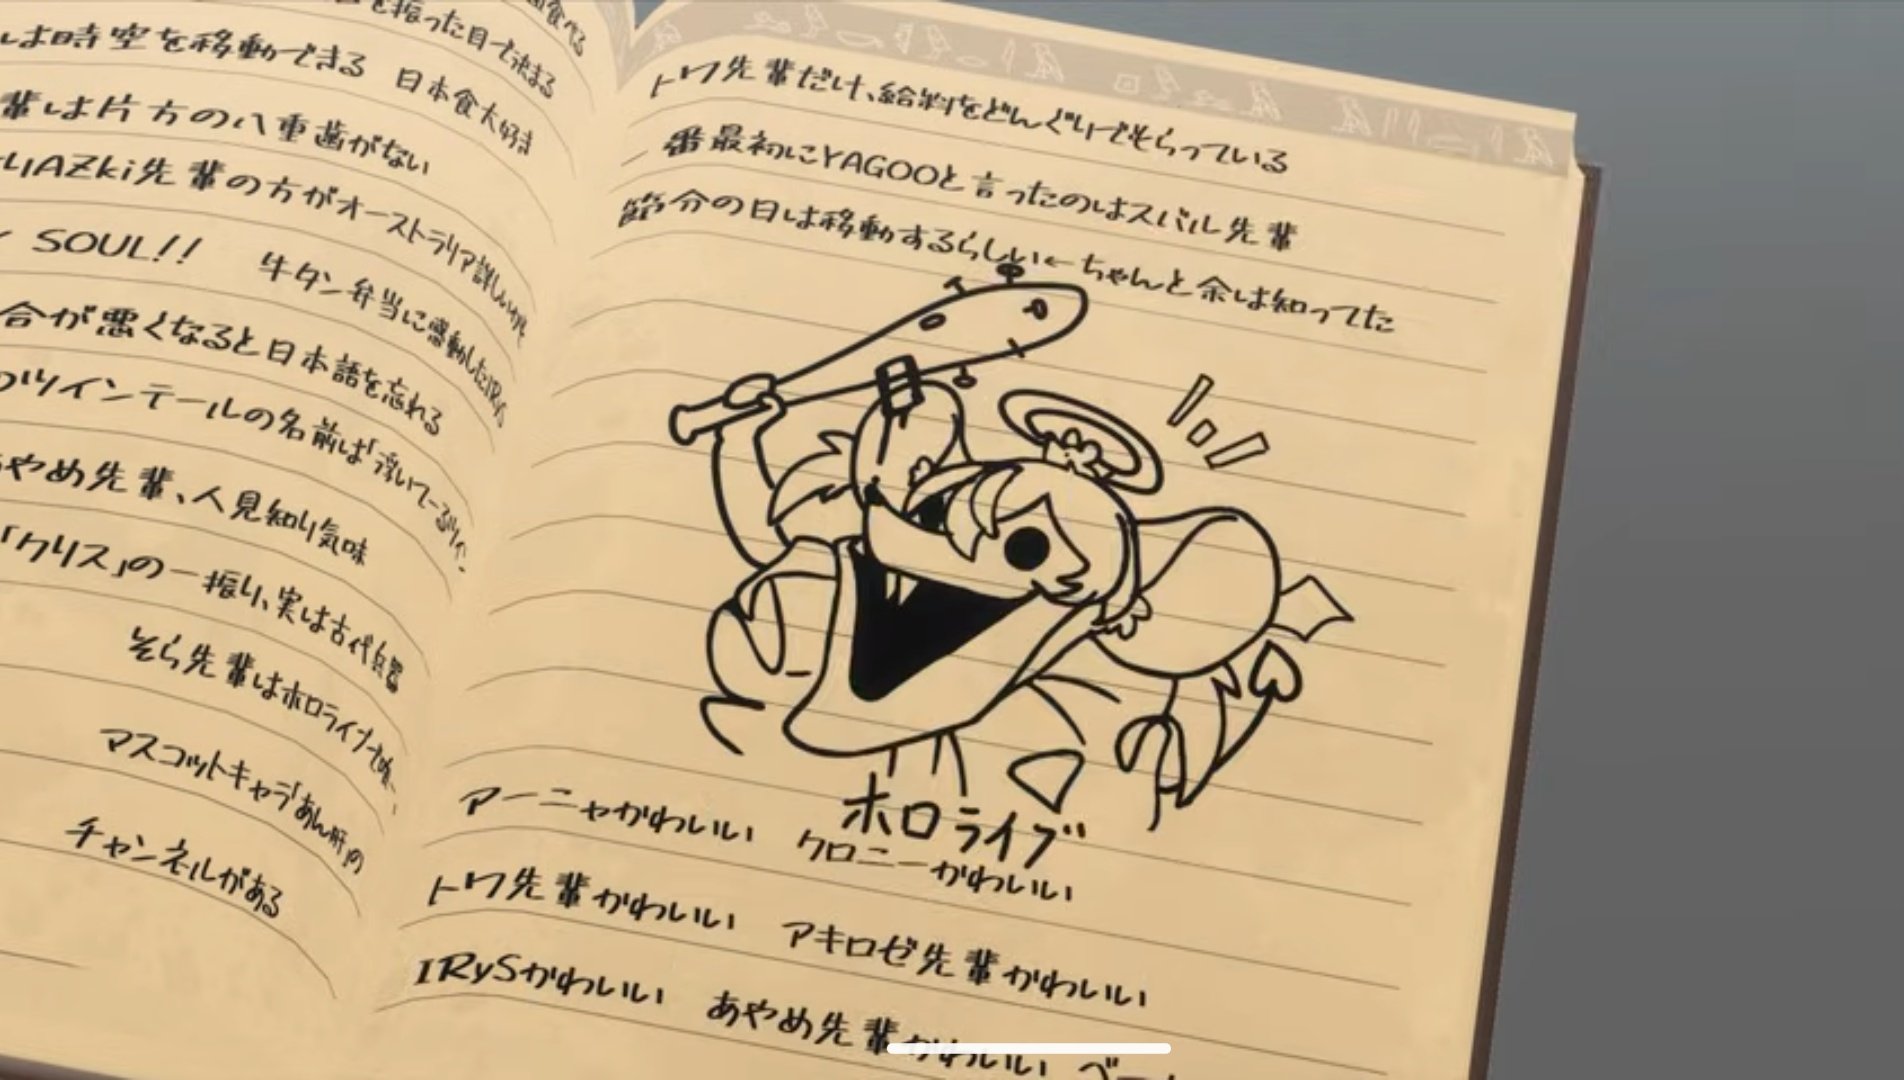 を振った目で決まる
は時空を移動できる 日本食大好き
輩は片方の八重歯がない
AZKi先輩の方がオーストラリア詳しい
SOUL!! 牛タン弁当に感動したIRyS
合が悪くなると日本語を忘れる
のツインテールの名前は「浮いてーるツイ
あやめ先輩、人見知り気味
「クリス」の一振り、実は古代兵器
そら先輩はホロライブで唯
マスコットキャラ「あん肝」の
チャンネルがある
トワ先輩だけ、給料をどんぐりでもらっている
一番最初にYAGOOと言ったのはスバル先輩
節分の日は移動するらしい←ちゃんと余は知ってた
ホロライブ
アーニャかわいい クロニーかわいい
トワ先輩かわいい アキロゼ先輩かわいい
IRySかわいい あやめ先輩かわいい ベー